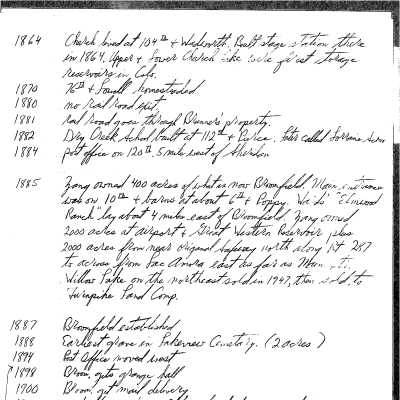 1864 Church lived at 104th + Wadsworth. Built stage station there
in 1864. Upper + Lower Church Lake were first storage
reservoirs in Colo.
1870 76th + Lowell homesteaded
1880 no rail road yet
1881 rail road goes through Brunner's property
1882 Dry Creek School built at 112th + Pierce. Later called Lorraine
1884 post office on 120th, 5 miles east of Sheridan
1885 Zang owned 400 acres of what is now Broomfield. Main entrance
was on 10th + barns at about 6th + Poppy. His "Elmwood
Ranch" lay about 4 miles east of Broomfield. Zang owned
2000 acres at airport + Great Western Reservoir plus
2000 acres from near original Safeway north along Rt 287
to across from east as far as
Willow Lake on the northeast sold in 1947, then sold to
Turnpike Land Comp.
1887 Broomfield established
1888 Earliest grave in Lakeview Cemetary. (2 acres)
1894 Post Office moved west
1898 Broom. gets grange hall
1900 Broom. get mail delivery